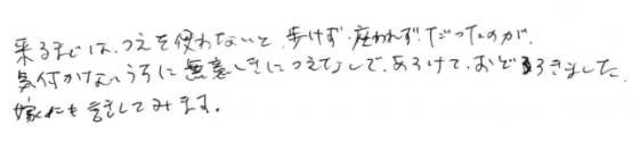 来るまでは、つえを使わないと、歩けず、座われず、だったのが、
気付かないうちに無意しきにつえなしで、あるけて、おどろきました。
嫁にも話してみます。